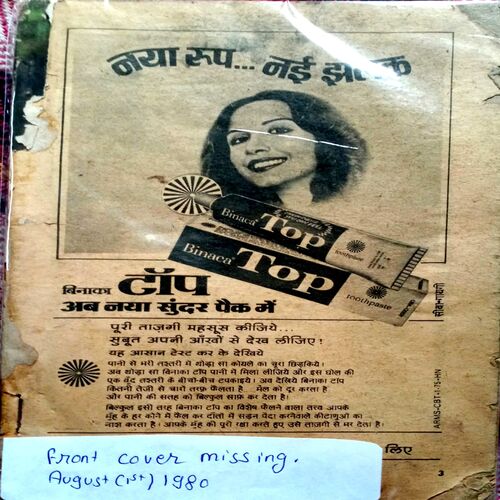 नया रुप... नई झलक
Binaca Top
toothpaste
Binaca Top
toothpaste
बिनाका टॉप
अब नया सुंदर पैक में
पूरी ताज़गी महसूस कीजिये...
सुबूत अपनी आँखों से देख लीजिए!
यह आसान टेस्ट कर के देखिये
पानी से भरी तश्तरी में थोड़ा सा कोयले का चूरा छिड़किये।
अब थोड़ा सा बिनाका टॉप पानी में मिला लीजिये और इस घोल की
एक बूंद तश्तरी के बीचो-बीच टपकाइये। अब देखिये बिनाका टॉप
कितनी तेजी से चारो तरफ़ फैलता है... मैल को दूर करता है
और पानी की सतह को बिल्कुल साफ़ कर देता है।
बिल्कुल इसी तरह बिनाका टॉप का विशेष फैलने वाला तत्व आपके
मुँह के हर कोने में फैल कर दाँतों में सड़न पैदा करनेवाले कीटाणुओं का
नाश करता है। आपके मुँह की पूरी रक्षा करते हुए उसे ताजगी से भर देता है।
लिए
सीबा-गायगी
ARMS-CBT-1-75-HN
3
Front cover missing.
August (1st) 1980